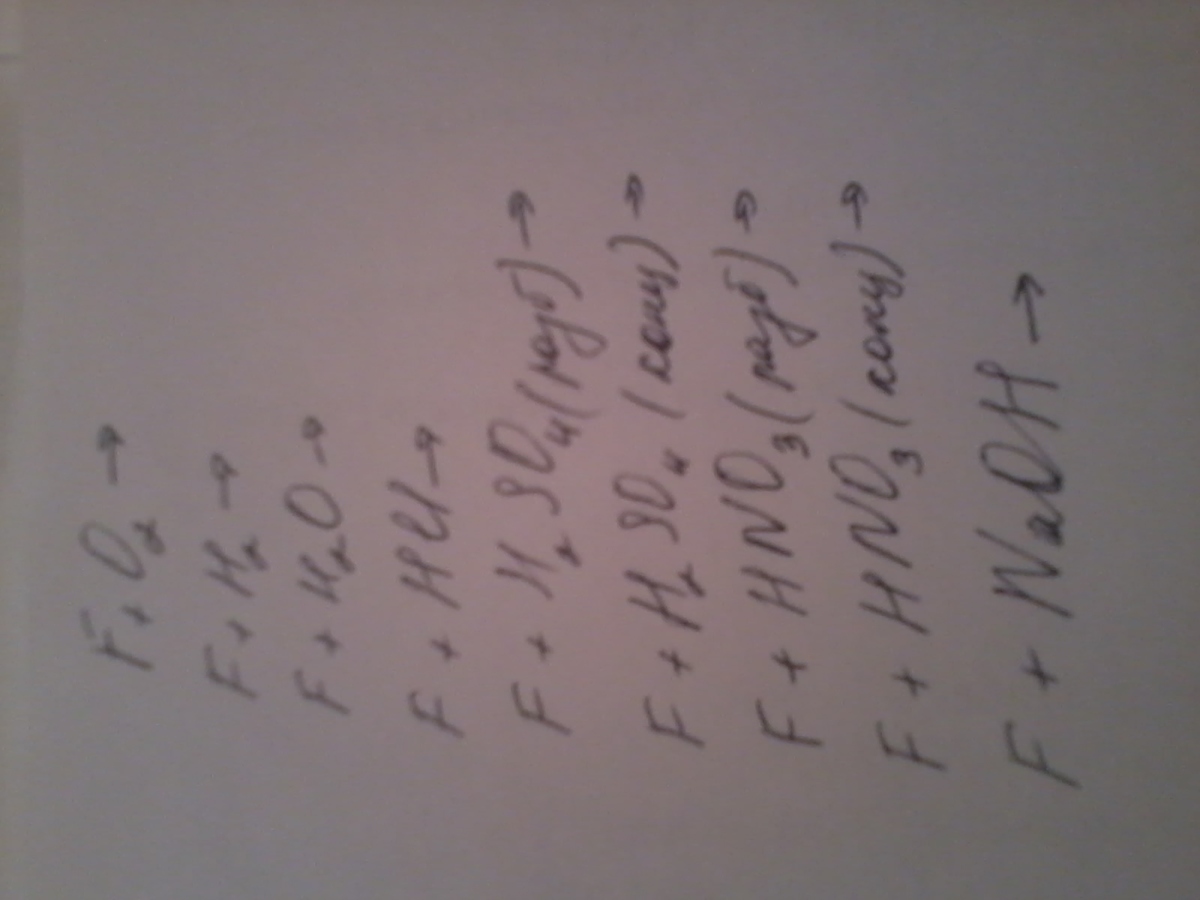 F + O₂ →
F + H₂ →
F + H₂O →
F + HCl →
F + H₂SO₄ (разб) →
F + H₂SO₄ (конц) →
F + HNO₃ (разб) →
F + HNO₃ (конц) →
F + NaOH →